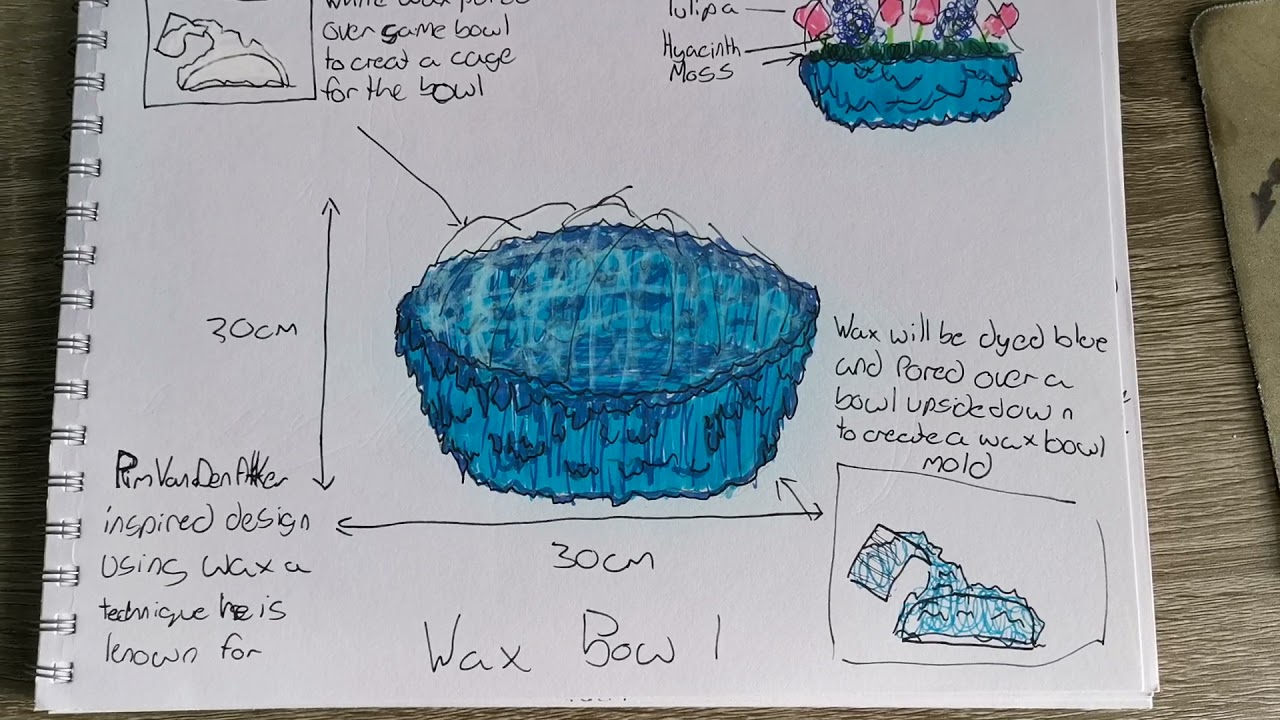 white wax pored
over same bowl
to creat a cage
for the bowl
Tulipa
Hyacinth
Moss
30cm
Wax will be dyed blue
and Pored over a
bowl upside down
to create a wax bowl
mold
Pim Van Den Akker
inspired design
using wax a
technique he is
known for
30cm
Wax Bowl